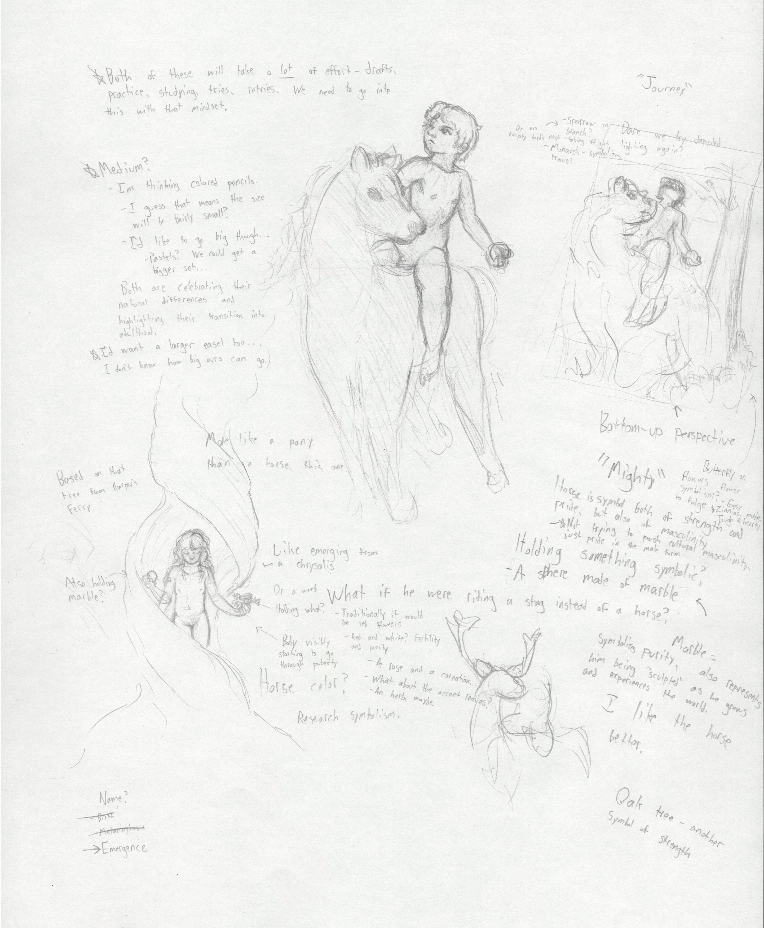 Both of these will take a lot of effort - drafts,
practice, studying, tries, retries. We need to go into
this with that mindset.
Medium?
- I'm thinking colored pencils.
- I guess that means the size
will be fairly small?
- I'd like to go big though...
- Pastels? We could get a
bigger set...
Both are celebrating their
natural differences and
highlighting their transition into
adulthood.
I'd want a larger easel too...
I don't know how big ours can go.
"Journey"
- Sparrow on
branch?
- Monarch - symbolizing
travel
Bottom-up perspective
More like a pony
than a horse, this one
Based on that
tree from Harper's
Ferry.
Like emerging from
a chrysalis
Also holding
marble?
Or a
Holding what?
- Traditionally it would
be red flowers
- Red and white? Fertility
and purity
- A rose and a carnation.
- What about the
- An herb, maybe
Body visibly
starting to go
through puberty
Horse color?
Research symbolism.
"Mighty"
Horse is symbol both of strength and
pride, but also of masculinity
- Not trying to push cultural masculinity,
just pride in the male form
Holding something symbolic?
- A sphere made of marble
What if he were riding a stag instead of a horse?
Marble =
Symbolizing purity, also represents
him being "sculpted" as he grows
and experiences the world.
I like the horse
better.
Oak tree - another
symbol of strength
Name?
Emergence